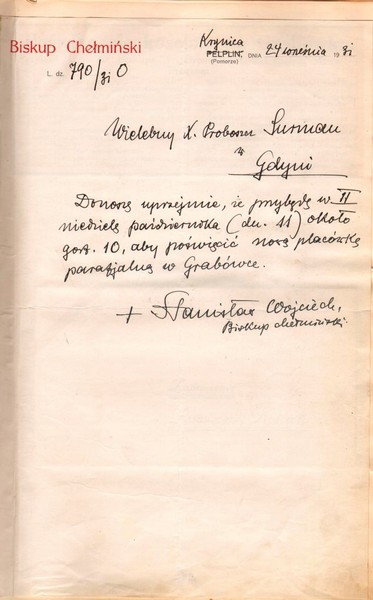 Biskup Chełmiński
Krynica
PELPLIN, DNIA 24 września 1931
(Pomorze)
L. dz. 790/31 O
Wielebny X. Proboszcz Surman
w
Gdyni
Donoszę uprzejmie, że przybędę w II
niedzielę października (dn. 11) około
godz. 10, aby poświęcić nową placówkę
parafjalną w Grabówce.
+ Stanisław Wojciech,
Biskup chełmiński.